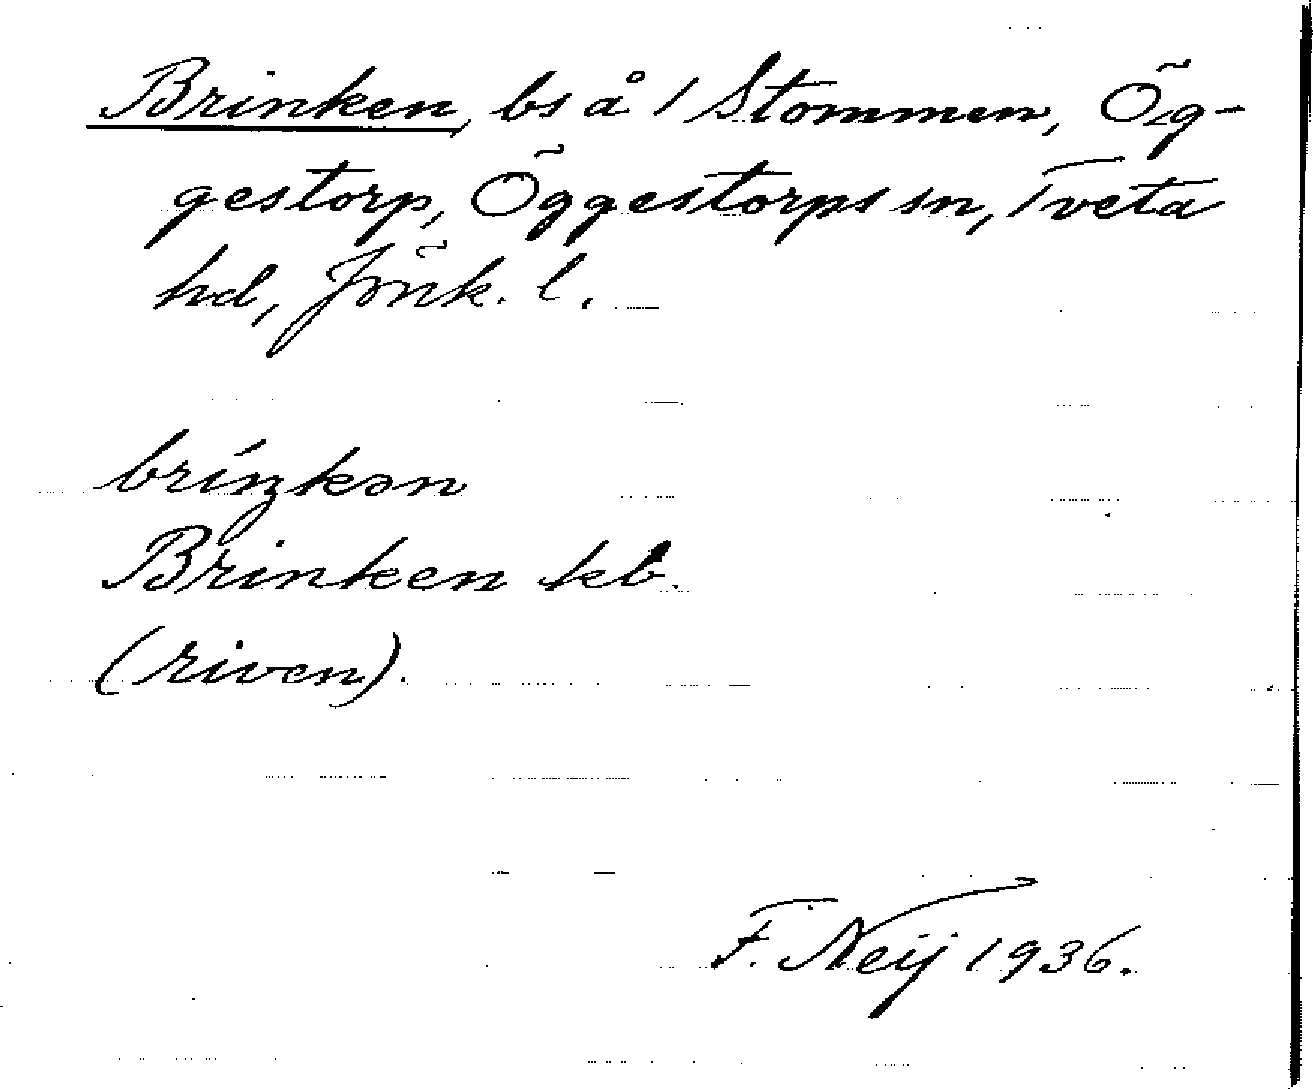 Brinken, bs å 1 Stommen, Ög-
gestorp, Öggestorps sn, Tveta
hd, Jönk. l.
bríŋkən
Brinken kb.
(riven).
F. Neij 1936.